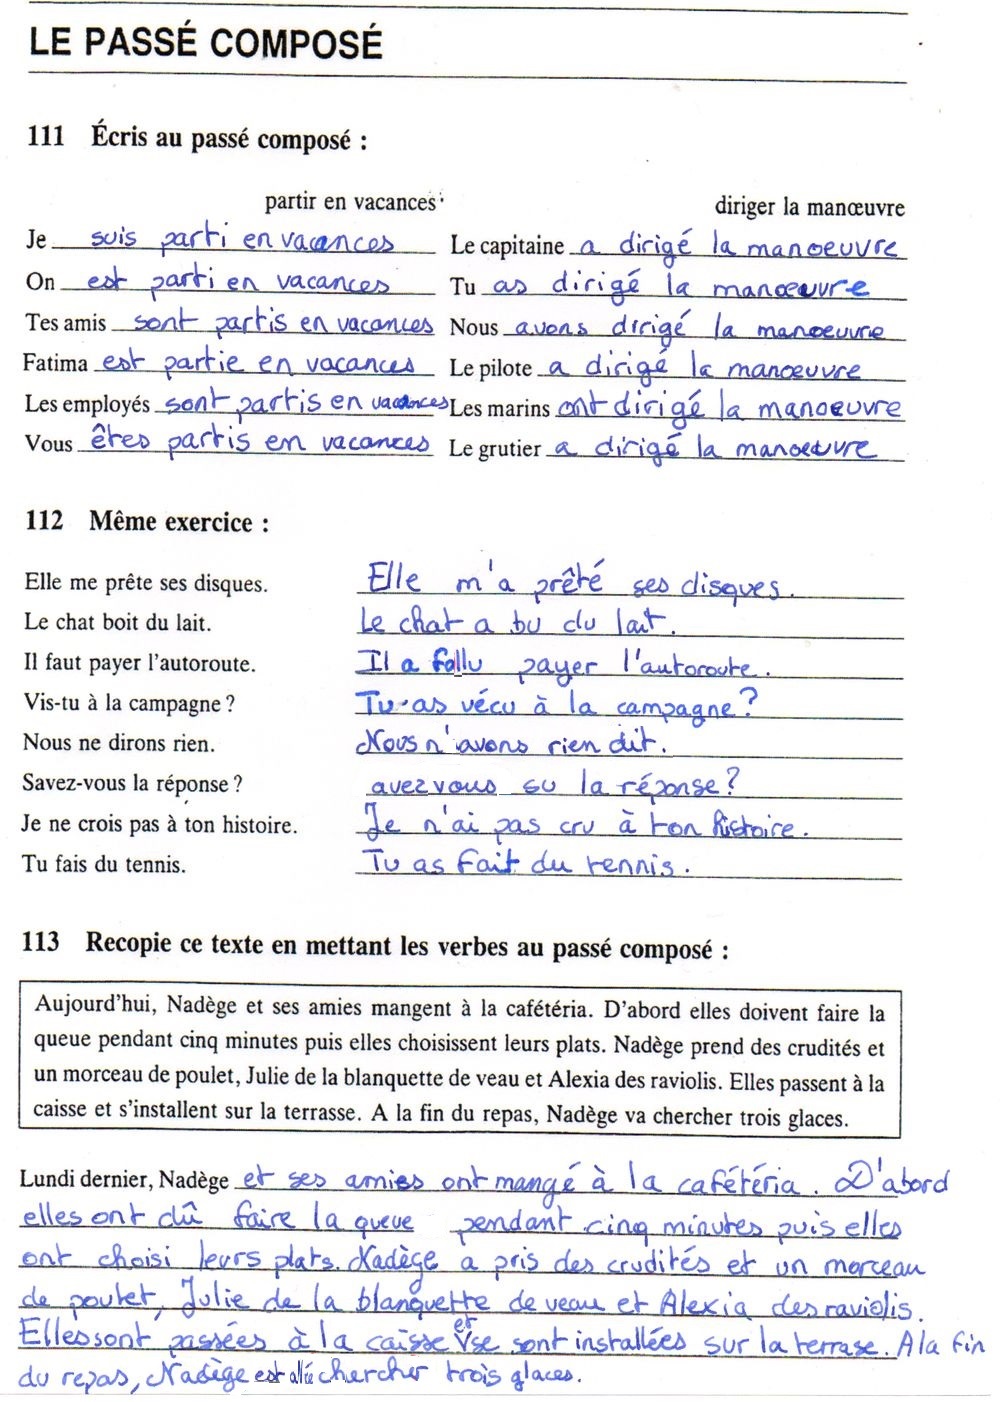 LE PASSÉ COMPOSÉ
111 Écris au passé composé :
partir en vacances
Je suis parti en vacances
On est parti en vacances
Tes amis sont partis en vacances
Fatima est partie en vacances
Les employés sont partis en vacances
Vous êtes partis en vacances
diriger la manœuvre
Le capitaine a dirigé la manoeuvre
Tu as dirigé la manœuvre
Nous avons dirigé la manoeuvre
Le pilote a dirigé la manœuvre
Les marins ont dirigé la manoeuvre
Le grutier a dirigé la manoeuvre
112 Même exercice :
Elle me prête ses disques. Elle m'a prêté ses disques.
Le chat boit du lait. Le chat a bu du lait.
Il faut payer l'autoroute. Il a fallu payer l'autoroute.
Vis-tu à la campagne ? Tu as vécu à la campagne ?
Nous ne dirons rien. Nous n'avons rien dit.
Savez-vous la réponse ? avez vous su la réponse ?
Je ne crois pas à ton histoire. Je n'ai pas cru à ton histoire.
Tu fais du tennis. Tu as fait du tennis.
113 Recopie ce texte en mettant les verbes au passé composé :
Aujourd'hui, Nadège et ses amies mangent à la cafétéria. D'abord elles doivent faire la
queue pendant cinq minutes puis elles choisissent leurs plats. Nadège prend des crudités et
un morceau de poulet, Julie de la blanquette de veau et Alexia des raviolis. Elles passent à la
caisse et s'installent sur la terrasse. A la fin du repas, Nadège va chercher trois glaces.
Lundi dernier, Nadège et ses amies ont mangé à la cafétéria. D'abord
elles ont dû faire la queue pendant cinq minutes puis elles
ont choisi leurs plats. Nadège a pris des crudités et un morceau
de poulet, Julie de la blanquette de veau et Alexia des raviolis.
Elles sont passées à la caisse et se sont installées sur la terrase. A la fin
du repas, Nadège est allée chercher trois glaces.